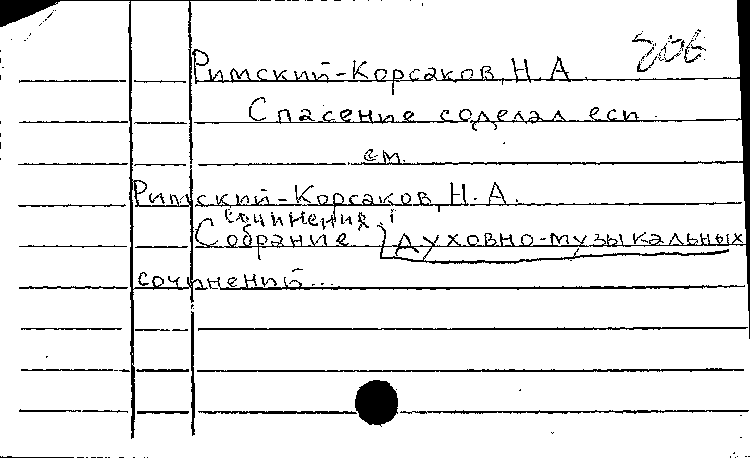 206
Римский-Корсаков, Н. А.
Спасение соделал еси
см.
Римский-Корсаков, Н. А.
сочинения
Собрание духовно-музыкальных
сочинений...